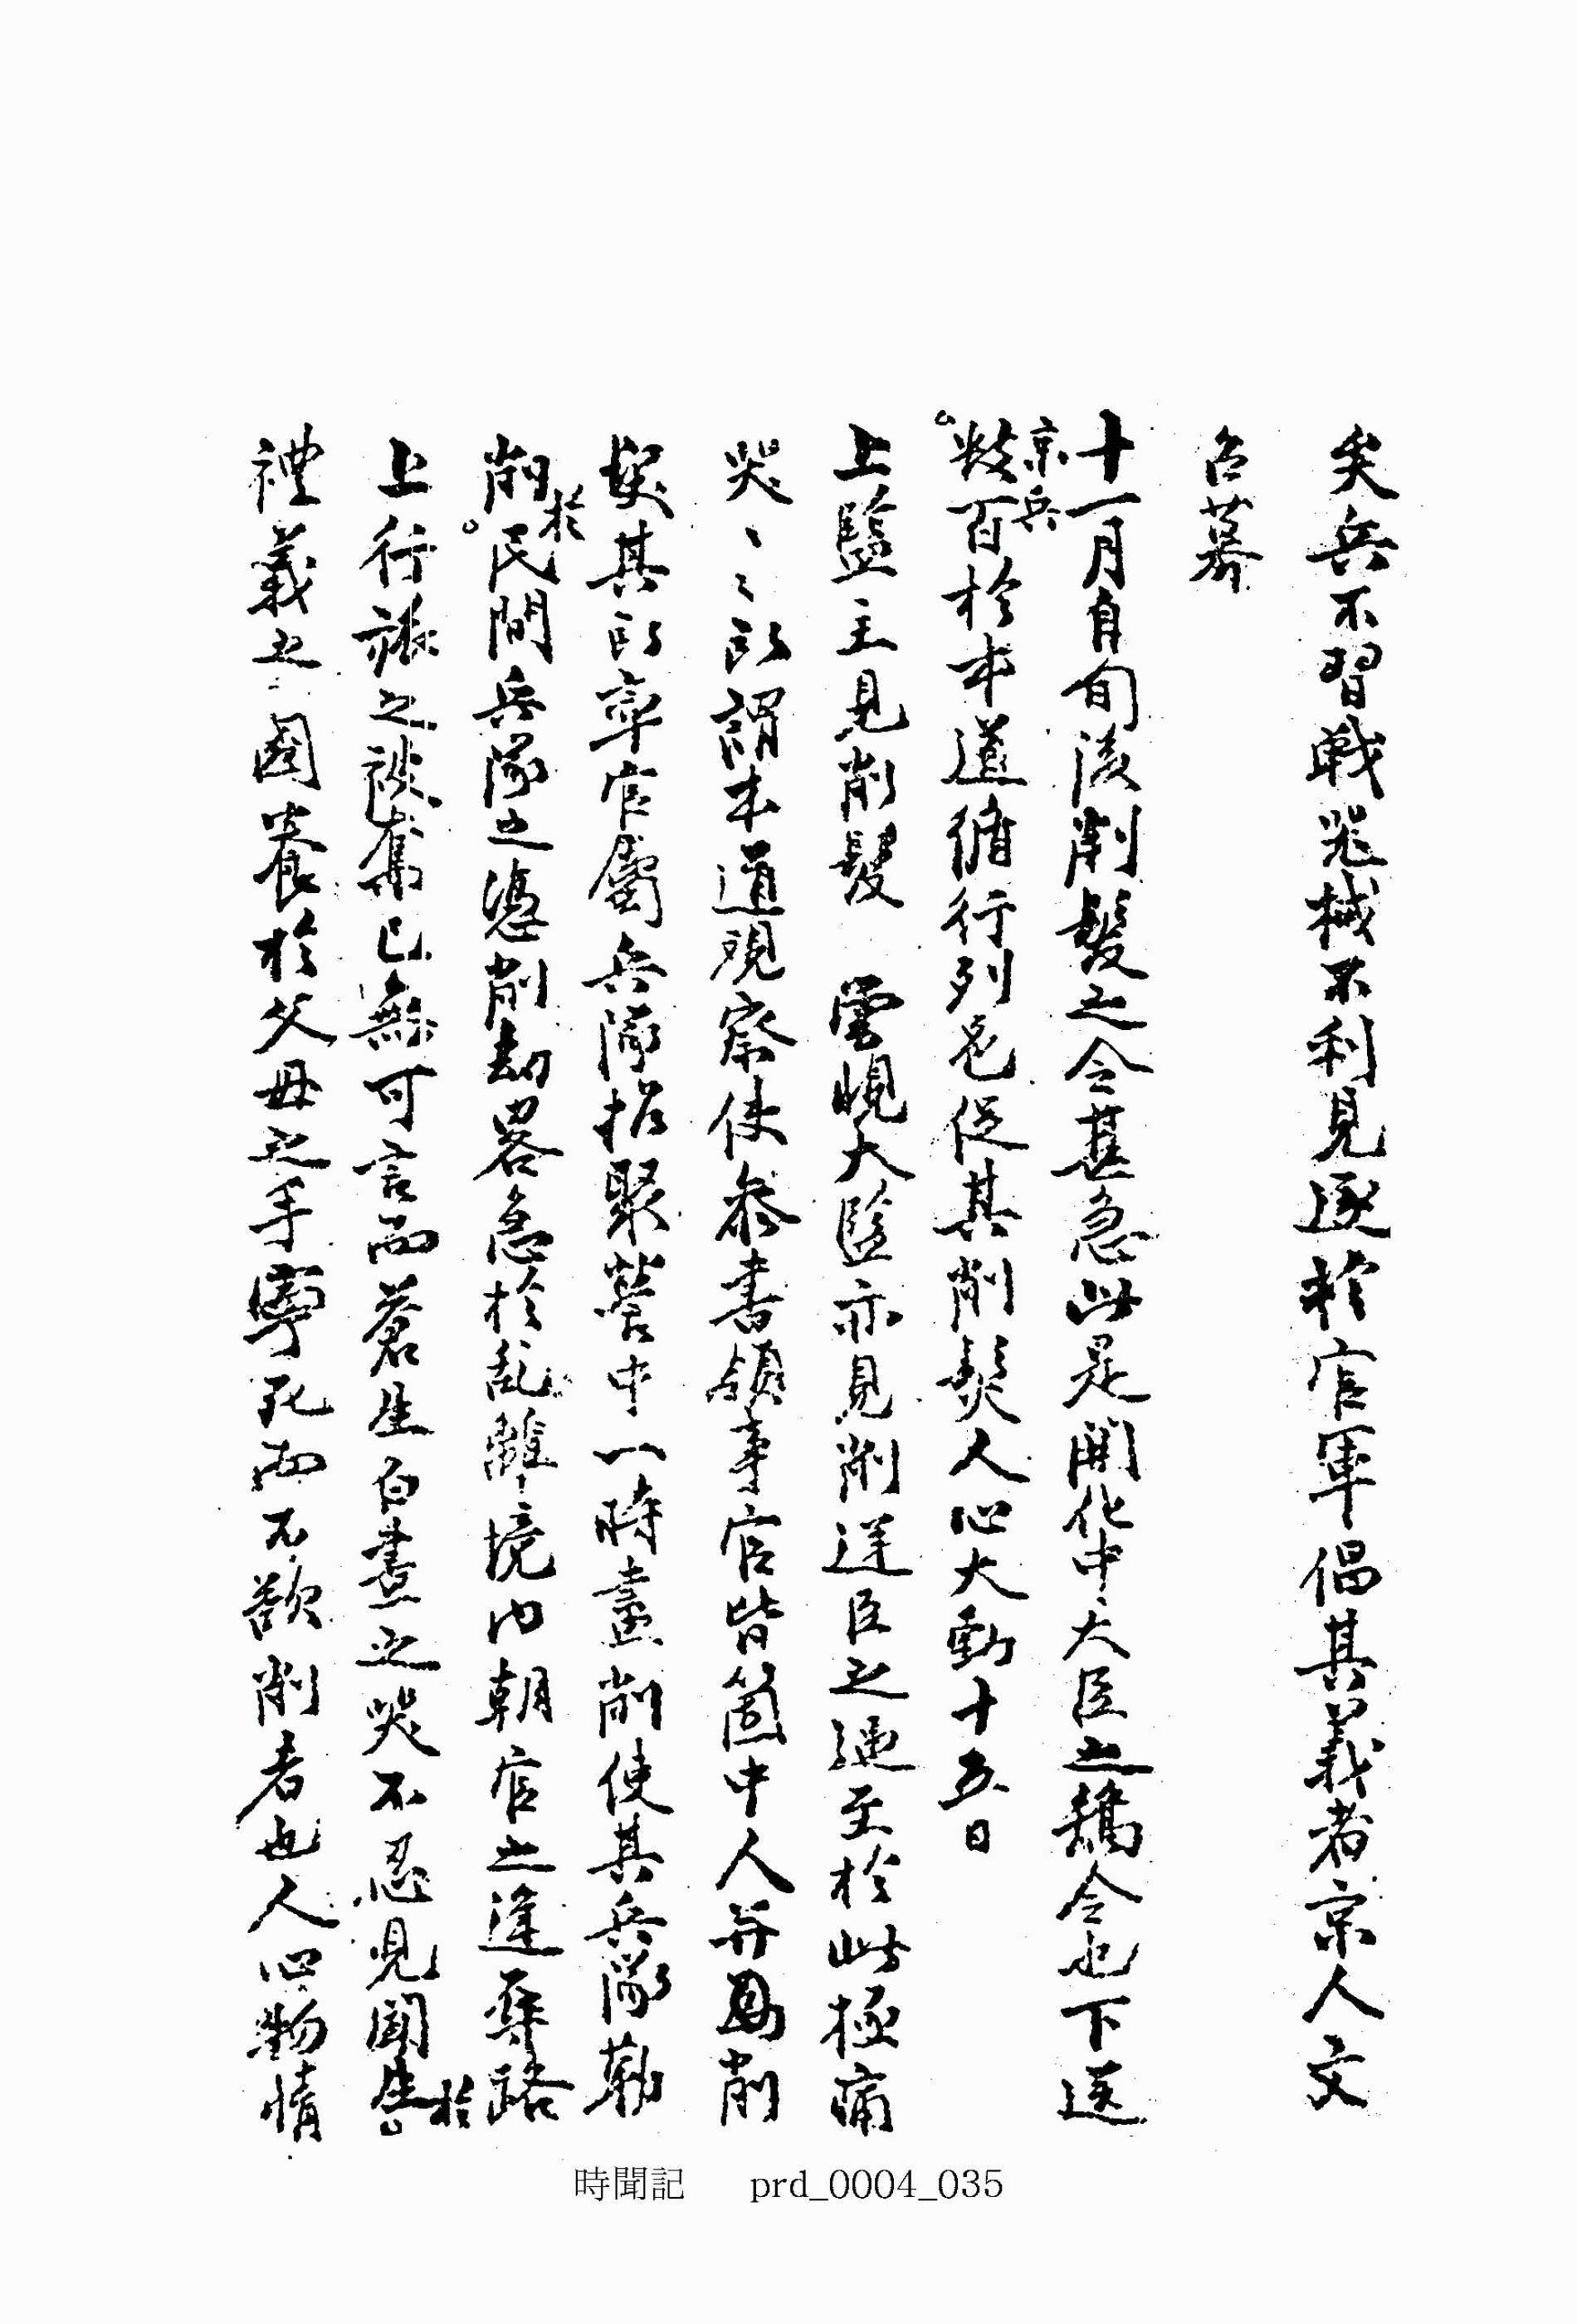 矣兵不習戰器械不利見逐於官軍倡其義者京人文
召募
十一月自旬後削髮之令甚急此是開化中大臣之矯令也下送
京兵
數百於本道循行列邑促其削髮人心大動十五日
上監主見削髮 雲峴大監亦見削逆臣之迚至於此極痛
哭〻〻所謂本道觀察使參書領事官皆箇中人并為削
髮其所率官屬兵隊招聚營中一時盡削使其兵隊勒
削於民間兵隊之憑削劫畧急於乱離境內朝官之逢辱路
上行旅之被奪已無可言而蒼生白晝之哭不忍見聞生於
禮義之國養於父母之手寧死而不欲削者也人心物情
時聞記 prd_0004_035